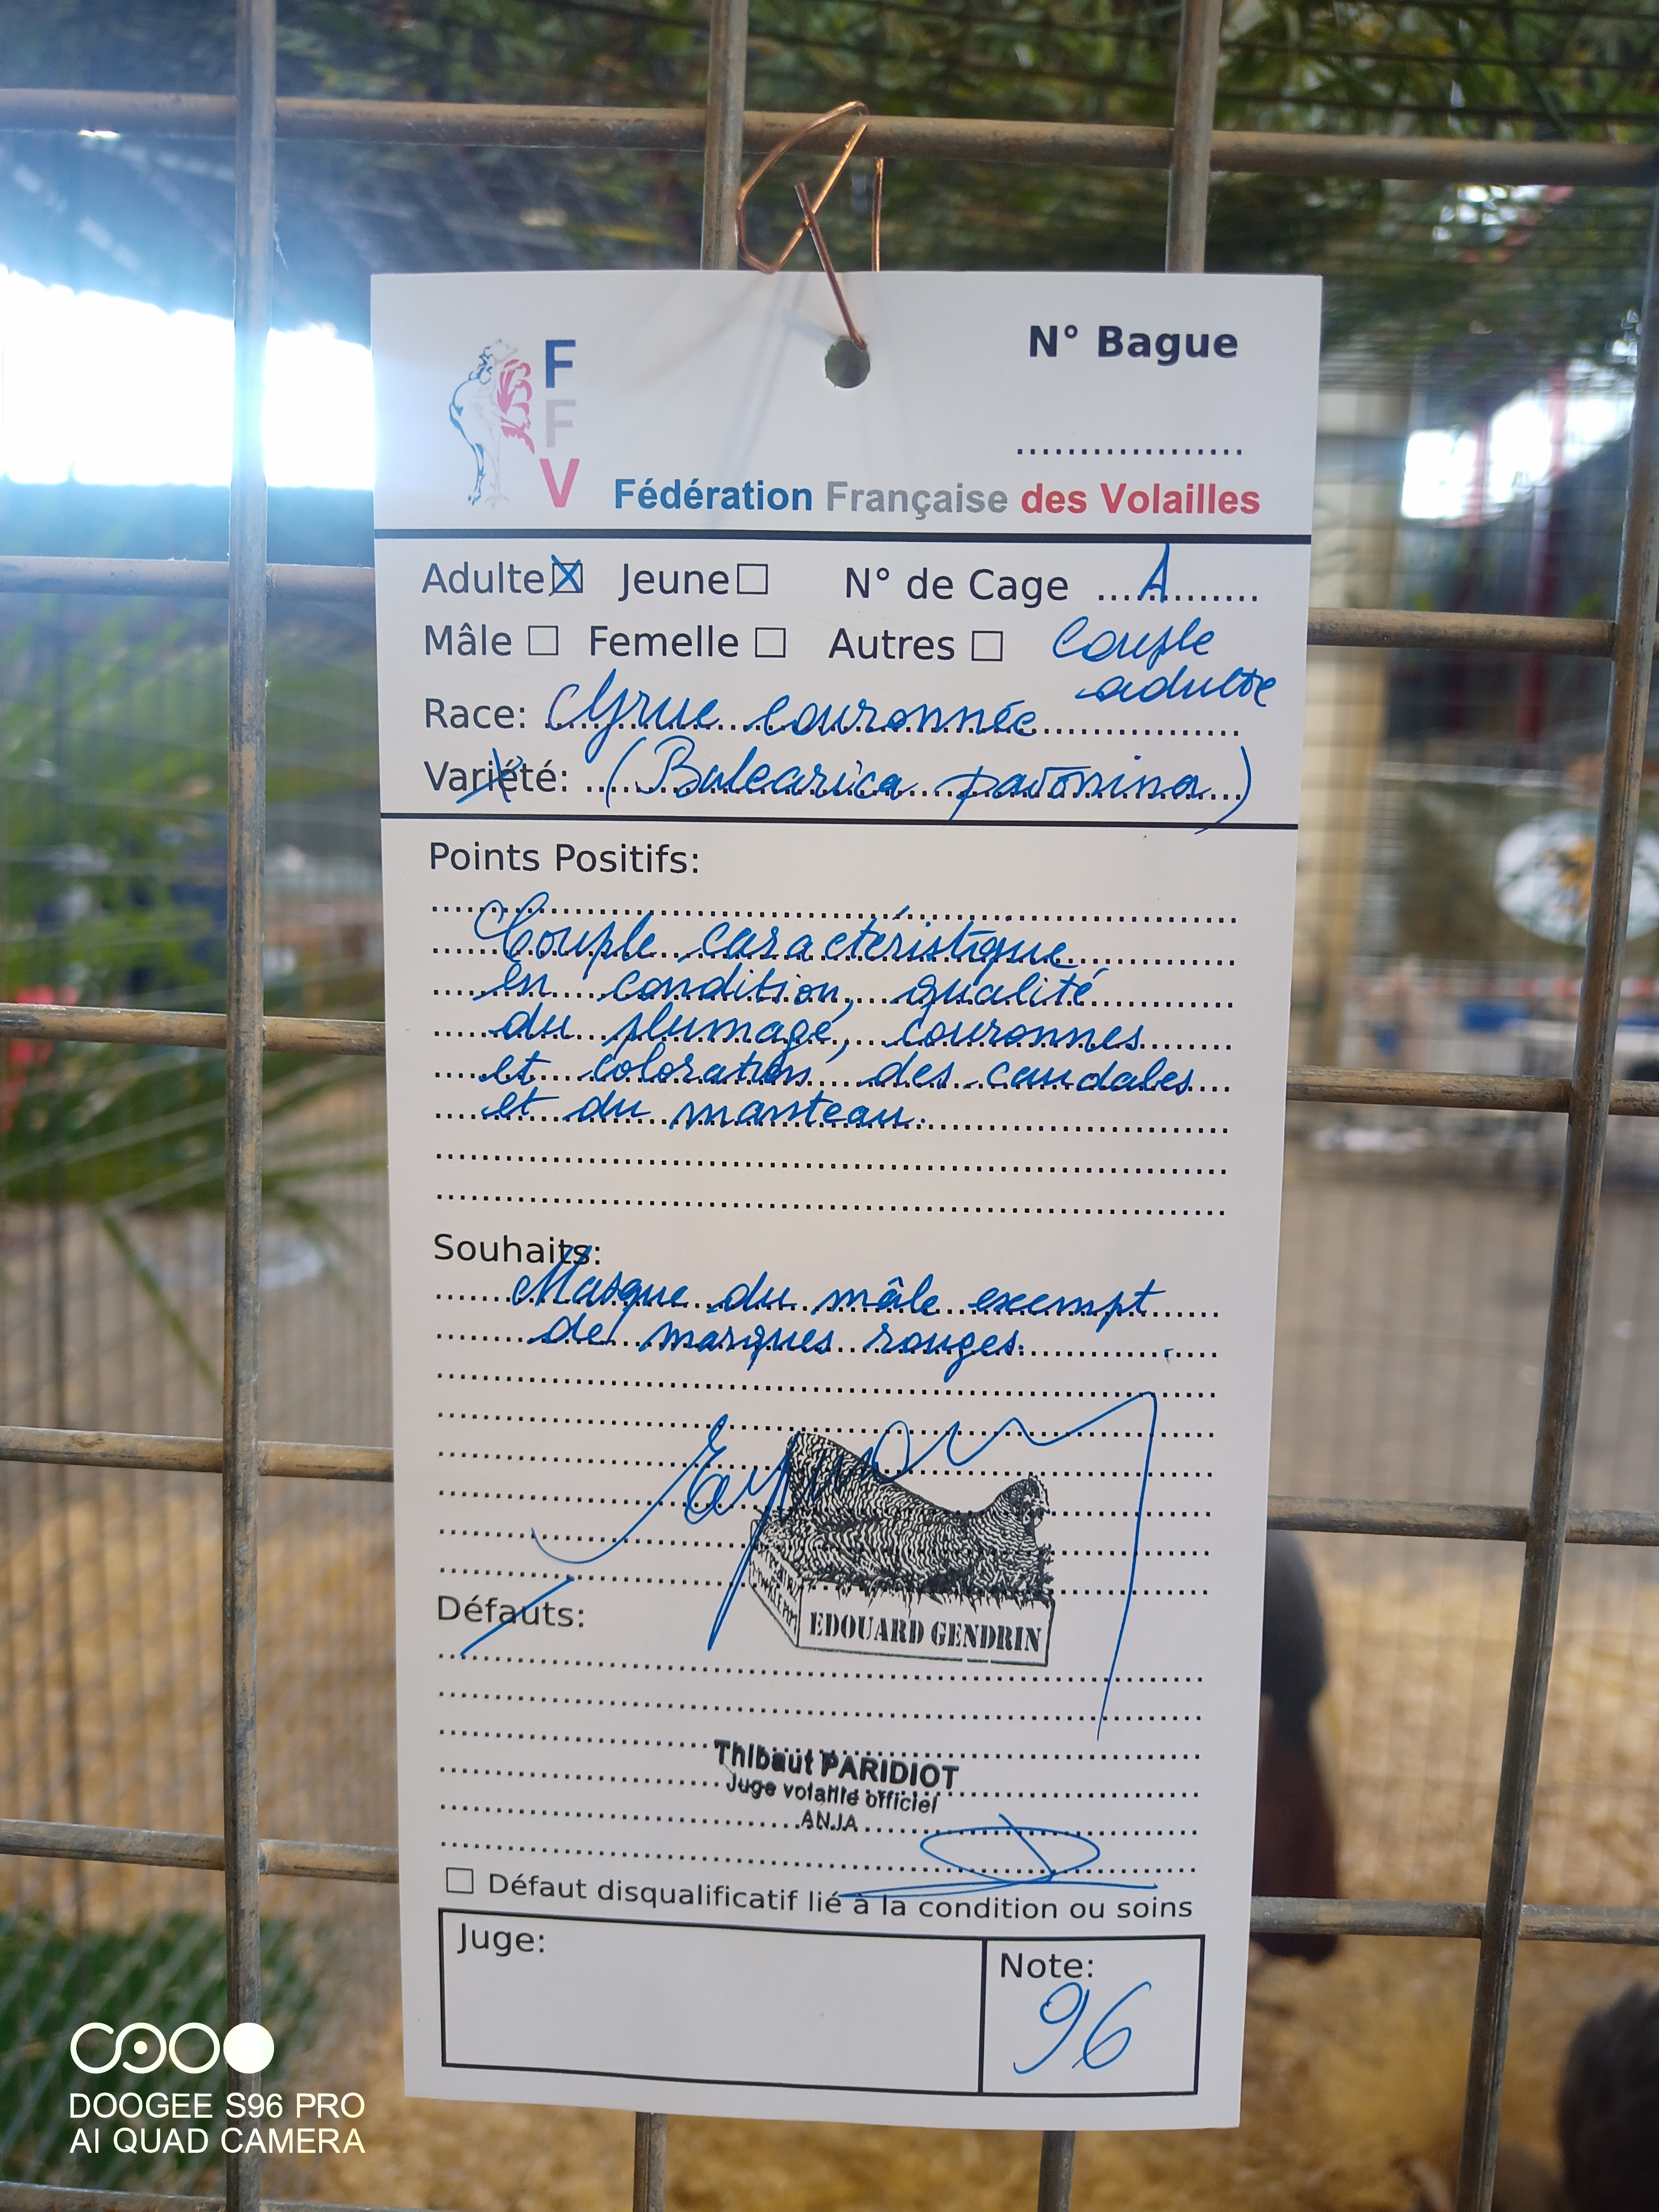 N° Bague
..................
F
F
V
Fédération Française des Volailles
Adulte ☒ Jeune ☐ N° de Cage ....A.......
Mâle ☐ Femelle ☐ Autres ☐ Couple
adulte
Race: Grue couronnée
Variété: (Balearica pavonina)
Points Positifs:
Couple caractéristique
en condition, qualité
du plumage, couronnes
et coloration des caudales
et du manteau.
Souhaits:
Masque du mâle exempt
de marques rouges.
EDOUARD GENDRIN
Défauts:
Thibaut PARIDIOT
Juge volaille officiel
ANJA
☐ Défaut disqualificatif lié à la condition ou soins
Juge:
Note:
96
DOOGEE S96 PRO
AI QUAD CAMERA